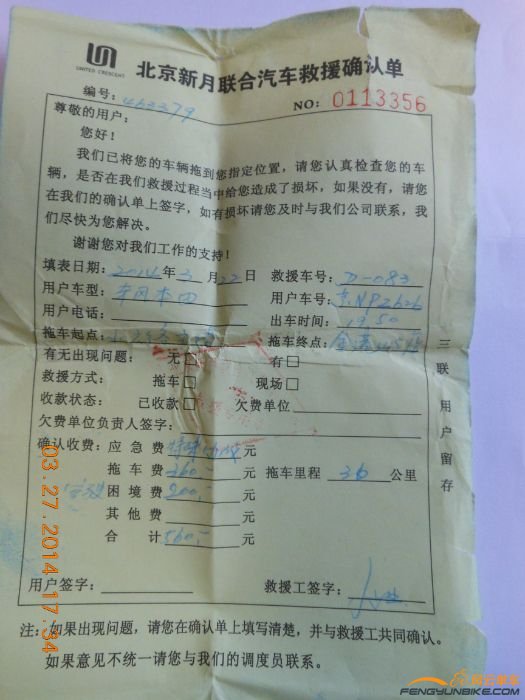 UNITED CRESCENT
北京新月联合汽车救援确认单
编号：463379
NO：0113356
尊敬的用户：
您好！
我们已将您的车辆拖到您指定位置，请您认真检查您的车
辆，是否在我们救援过程当中给您造成了损坏，如果没有，请您
在我们的确认单上签字，如有损坏请您及时与我们公司联系，我
们尽快为您解决。
谢谢您对我们工作的支持！
填表日期：2014年3月22日 救援车号：D-083
用户车型：东风本田 用户车号：京NP2626
用户电话： 出车时间：1950
拖车起点： 拖车终点：
有无出现问题： 无□ 有□
救援方式： 拖车□ 现场□
收款状态： 已收款□ 欠费单位
欠费单位负责人签字：
确认收费： 应急费 元
拖车费 360 元 拖车里程 36 公里
困境费 200 元
其他费 元
合计 560 元
用户签字： 救援工签字：
注：如果出现问题，请您在确认单上填写清楚，并与救援工共同确认。
如果意见不统一请您与我们的调度员联系。
三联 用户留存
03.27.2014 17:34
风云单车
FENGYUNBIKE.COM